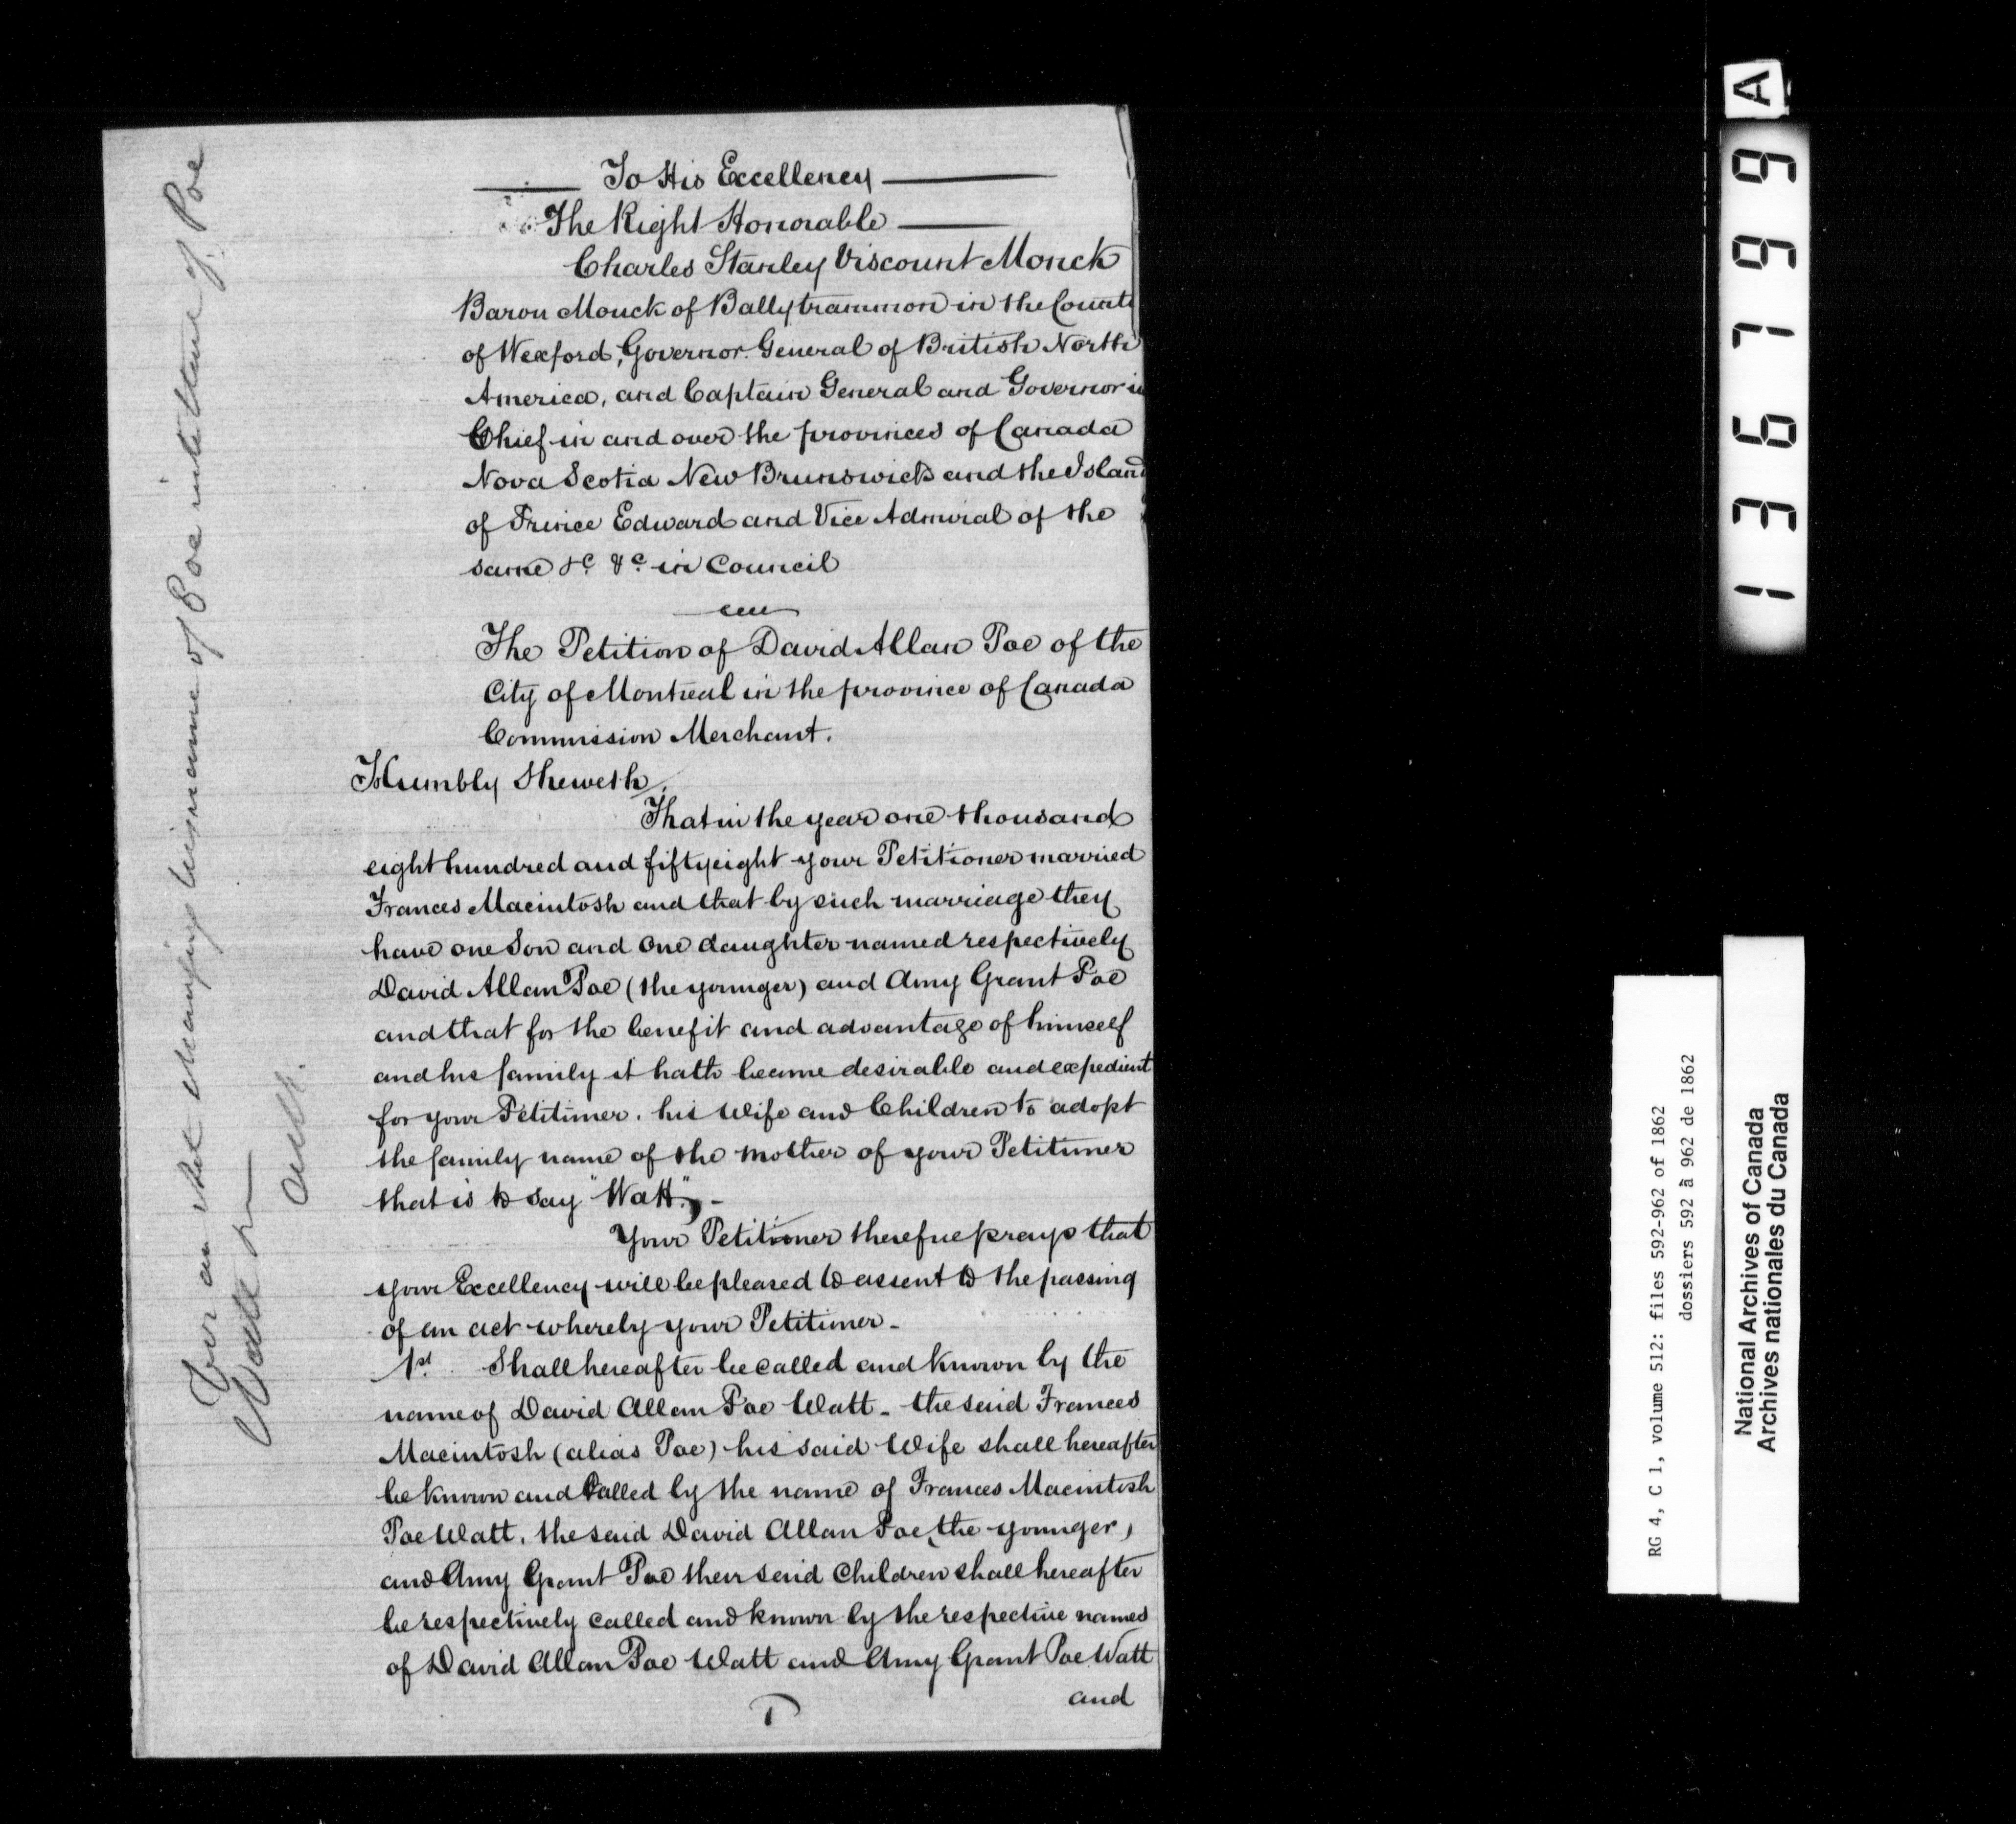 To His Excellency
The Right Honorable
Charles Stanley Viscount Monck
Baron Monck of Ballytrammon in the Count
of Wexford, Governor General of British North
America, and Captain General and Governor in
Chief in and over the provinces of Canada
Nova Scotia New Brunswick and the Island
of Prince Edward and Vice Admiral of the
same &c &c in Council
The Petition of David Allan Poe of the
City of Montreal in the province of Canada
Commission Merchant.
Humbly Sheweth,
That in the year one thousand
eight hundred and fiftyeight your Petitioner married
Frances Macintosh and that by such marriage they
have one Son and One daughter named respectively
David Allan Poe (the younger) and Amy Grant Poe
and that for the benefit and advantage of himself
and his family it hath become desirable and expedient
for your Petitioner. his Wife and Children to adopt
the family name of the mother of your Petitioner
that is to say "Watt", -
Your Petitioner therefore prays that
your Excellency will be pleased to assent to the passing
of an act whereby your Petitioner -
1st Shall hereafter be called and known by the
name of David Allan Poe Watt - the said Frances
Macintosh (alias Poe) his said Wife shall hereafter
be known and Called by the name of Frances Macintosh
Poe Watt, the said David Allan Poe (the younger)
and Amy Grant Poe their said Children shall hereafter
be respectively called and known by the respective names
of David Allan Poe Watt and Amy Grant Poe Watt
and
For an Act changing his name of Poe into that of Poe
Watt
136799
A
RG 4, C 1, volume 512: files 592-962 of 1862
dossiers 592 à 962 de 1862
National Archives of Canada
Archives nationales du Canada